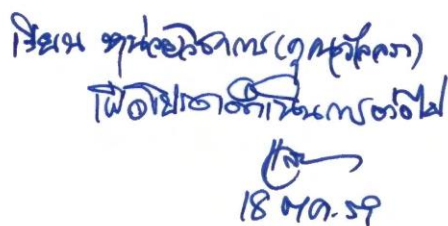 เรียน หน่วยวิชาการ (คุณวัลภา)
เพื่อโปรดดำเนินการต่อไป
18 ต.ค. 59